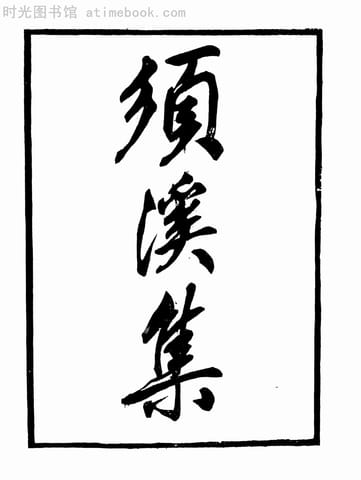 时光图书馆 - atimebook.com
須溪集